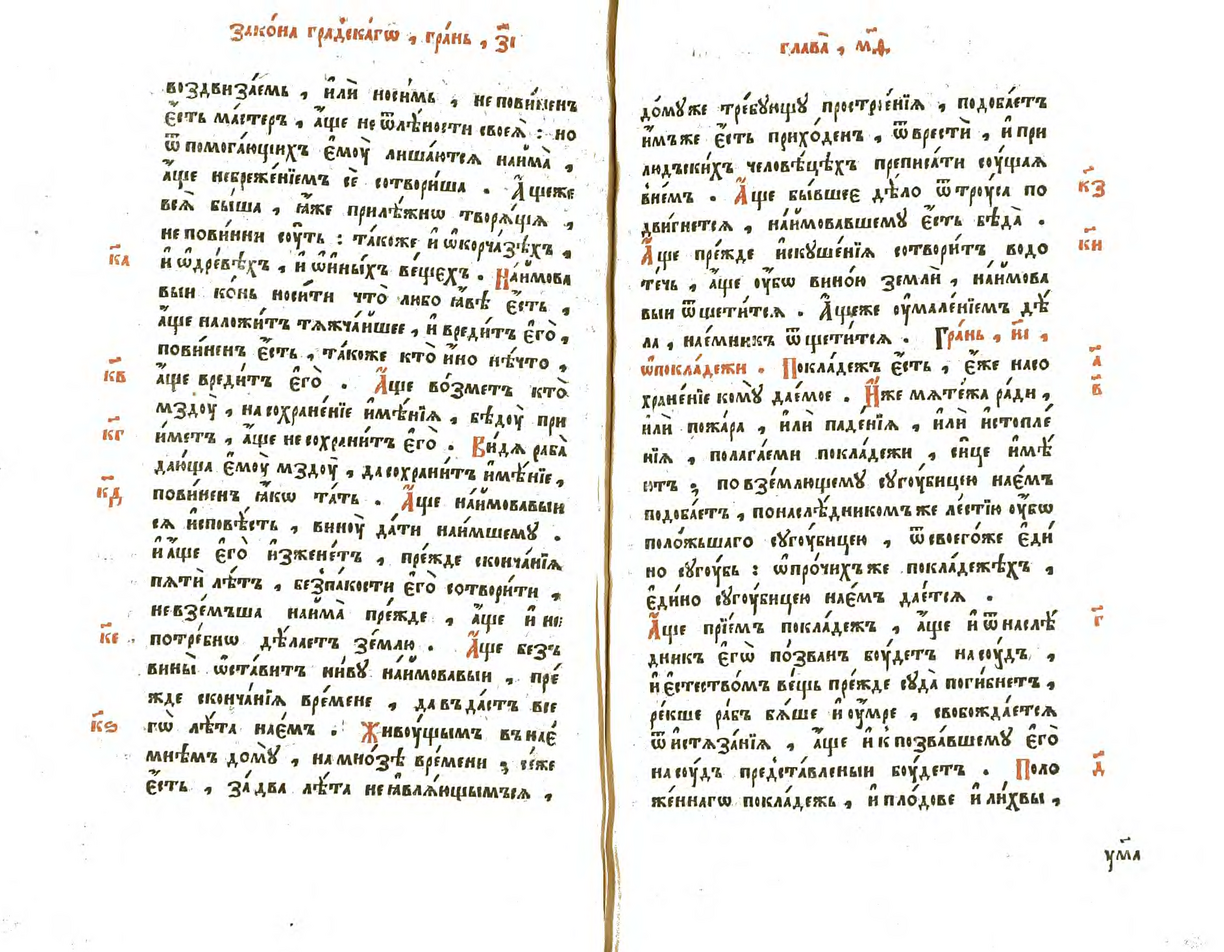 Зако́на гра́дскагѡ , гра́нь , з҃і
воздвиза́емь , и҆лѝ носи́мь , непови́ненъ
є҆́сть ма́стеръ , а҆́ще не ѿлѣ́ности своеѧ̀ : но
ѿ помога́ющихъ є҆моу̀ лиша́ютсѧ наима̀ ,
а҆́ще небреже́нїемъ сѐ сотвори́ша . А҆́щеже
всѧ̀ бы́ша , ꙗ҆́же прилѣ́жнѡ творѧ́щїѧ ,
неповинни соу́ть : та́коже и҆ ѡ҆корча́зѣхъ ,
к҃а
и҆ ѡ҆дре́вѣхъ , и҆ ѡ҆и́ныхъ ве́щехъ . Наимова
выи ко́нь носи́ти что̀ либо ꙗ҆́вѣ є҆́сть ,
а҆́ще наложи́тъ тѧжча́ишее , и҆ вреди́тъ є҆го̀ ,
пови́ненъ є҆́сть , та́коже кто̀ и҆́но нѣ́что ,
к҃в
а҆́ще вреди́тъ є҆го̀ . А҆́ще во́зметъ кто̀
мздоу̀ , на сохране́нїе и҆мѣ́нїѧ , бѣдоу̀ прі
к҃г
и҆́метъ , а҆́ще не сохрани́тъ є҆го̀ . Ви́дѧ раба̀
даю́ща є҆моу̀ мздоу̀ , да сохрани́тъ и҆мѣ́нїе ,
к҃д
пови́ненъ ꙗ҆́кѡ та́ть . А҆́ще наимовавыи
сѧ и҆сповѣ́сть , виноу̀ да́ти наимшему .
и҆ а҆́ще є҆го̀ и҆зжене́тъ , пре́жде сконча́нїѧ
пѧтѝ лѣ́тъ , безпакости є҆го̀ сотвори́ти ,
невзе́мъша наима̀ пре́жде , а҆́ще и҆ не
к҃е
потре́бнѡ дѣ́лаетъ зе́млю . А҆́ще безъ
вины̀ ѡ҆ста́витъ ни́ву наимовавыи , пре́
жде сконча́нїѧ вре́мене , да въда́стъ все
к҃ѕ
гѡ̀ лѣ́та нае́мъ . Живоу́щымъ в нае́
мнѣмъ дому̀ , на мно́зѣ вре́мени ; се́же
є҆́сть , за два лѣ́та не ꙗ҆влѧ́ющымъсѧ ,
глава̀ , м҃ѳ
до́муже тре́бующу простро́енїѧ , подоба́етъ
и҆́мъже є҆́сть прихо́денъ , ѿврестѝ , и҆ при
лю́дьскихъ человѣ́цѣхъ преписа́ти соу́щаѧ
к҃з
вне́мъ . А҆́ще бы́вшеє дѣ́ло ѿ троу́са по
дви́гнетсѧ , наимовавшему є҆́сть бѣда̀ .
к҃и
А҆́ще пре́жде и҆скуше́нїѧ сотвори́тъ водо
те́чь , а҆́ще оу҆́бѡ вино́ю землѝ , наимова
выи ѿщети́тсѧ . А҆́щеже оу҆мале́нїемъ дѣ́
ла , нае́мникъ ѿщети́тсѧ . Гра́нь , и҃і ,
а҃
ѡ҆покла́дежи . Покла́дежъ є҆́сть , є҆́же насо
в҃
хране́нїе кому̀ дае́мое . И҆́же мѧте́жа ра́ди ,
и҆лѝ пожа́ра , и҆лѝ паде́нїѧ , и҆лѝ и҆стопле́
нїѧ , полага́еми покла́дежи , си́це и҆мѣ́
ютъ ; по взе́млющему сугоу́бицею нае́мъ
подоба́етъ , понаслѣ́дникомъже ле́стїю оу҆́бѡ
поло́жьшаго сугоу́бицею , ѿ своего́же є҆ди
но сугоу́бь : ѡ҆про́чихъже покла́дежѣхъ ,
є҆ди́но сугоу́бицею нае́мъ дае́тсѧ .
г҃
А҆́ще прїе́мъ покла́дежъ , а҆́ще и҆ ѿ наслѣ́
дникъ є҆гѡ̀ по́званъ боу́детъ на соу́дъ ,
и҆ є҆стество́мъ ве́щь пре́жде суда̀ поги́бнетъ ,
ре́кше ра́бъ бѧ́ше и҆ оу́мре , свобожда́етсѧ
ѿ и҆стѧза́нїѧ , а҆́ще и҆ к позва́вшему є҆го̀
д҃
на соу́дъ предста́вленыи боу́детъ . Поло
же́ннагѡ покла́дежь , и҆ пло́дове и҆ ли́хвы ,
ум҃а